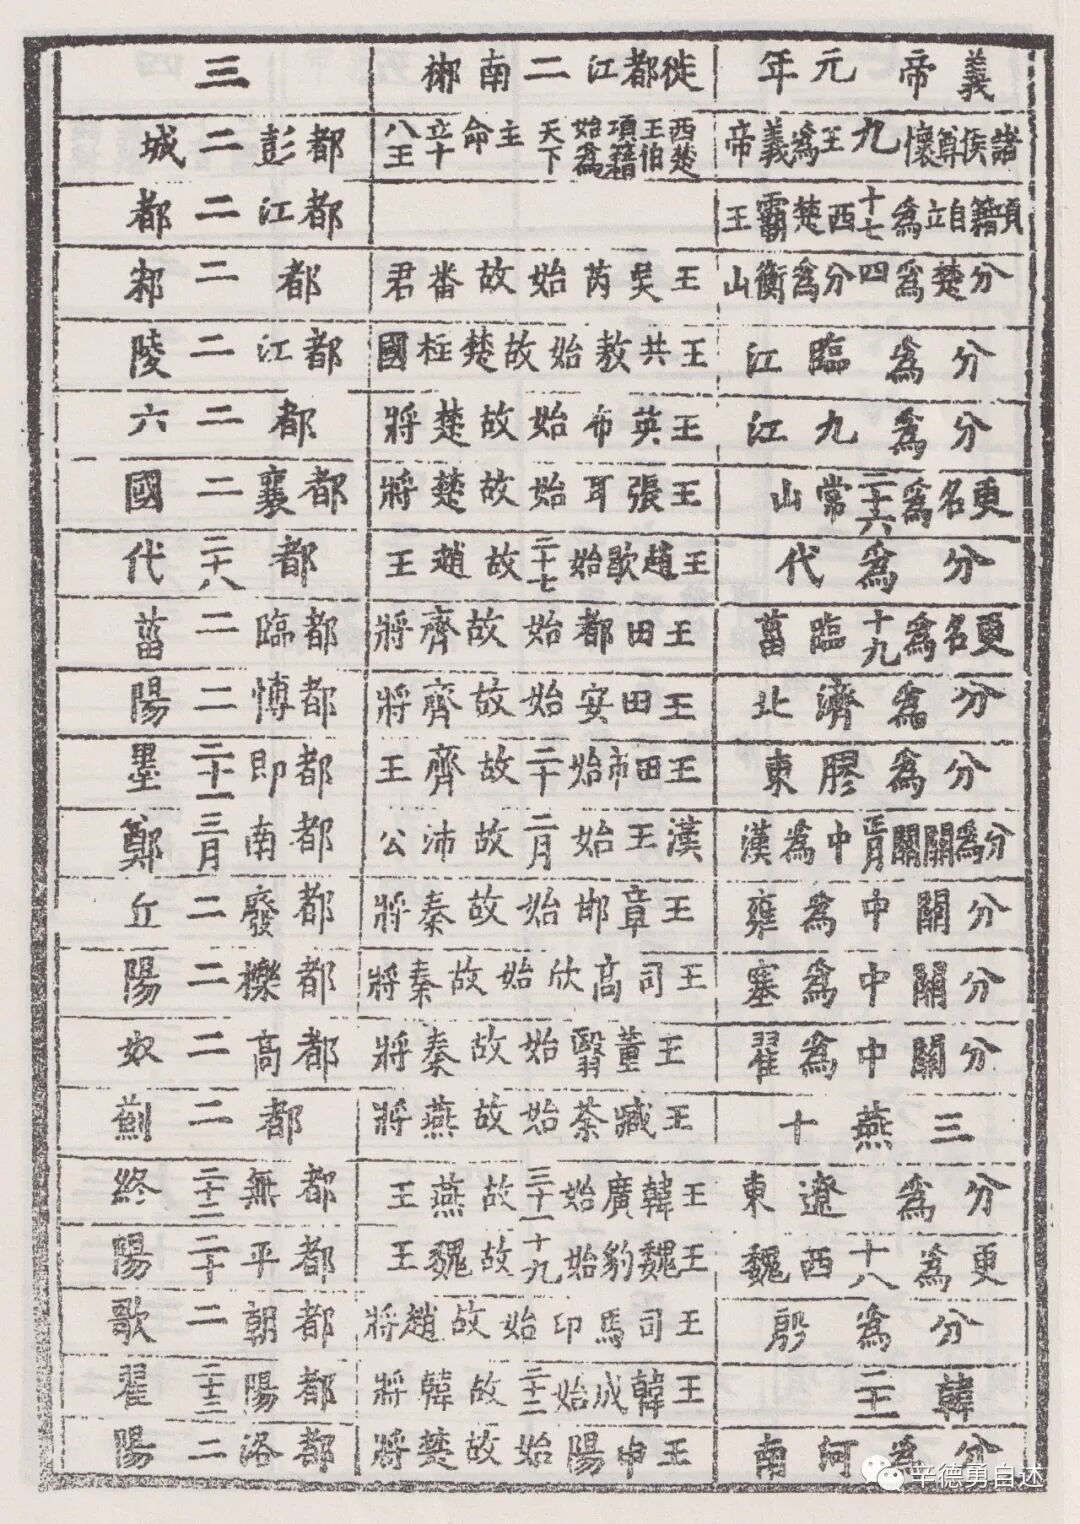 義帝元年
諸侯尊懷九王爲義帝
項籍自立爲十七西楚霸王
分楚爲四分爲衡山
分爲臨江
分爲九江
更名爲二十六常山
分爲代
更名爲十九臨菑
分爲濟北
分爲膠東
分爲關關正月中爲漢
分關中爲雍
分關中爲塞
分關中爲翟
三燕十
分爲遼東
更爲十八西魏
分爲殷
韓二十一
分爲河南
徙都江二南郴
西楚王伯項籍始爲天下主命立十八王
王吳芮始故番君
王共敖始故楚柱國
王英布始故楚將
王張耳始故楚將
王趙歇始二十七故趙王
王田都始故齊將
王田安始故齊將
王田市始二十故齊王
漢王始二月故沛公
王章邯始故秦將
王司高欣始故秦將
王董翳始故秦將
王臧荼始故燕將
王韓廣始三十一故燕王
王魏豹始十九故魏王
王司馬印始故趙將
王韓成始二十二故韓將
王申陽始故楚將
三
都彭二城
都江二都
都二邾
都江二陵
都二六
都襄二國
都二十八代
都臨二菑
都博二陽
都即二十一墨
都南三月鄭
都廢二丘
都櫟二陽
都高二奴
都二薊
都無三十二終
都平二十陽
都朝二歌
都陽二十三翟
都洛二陽
辛德勇自述